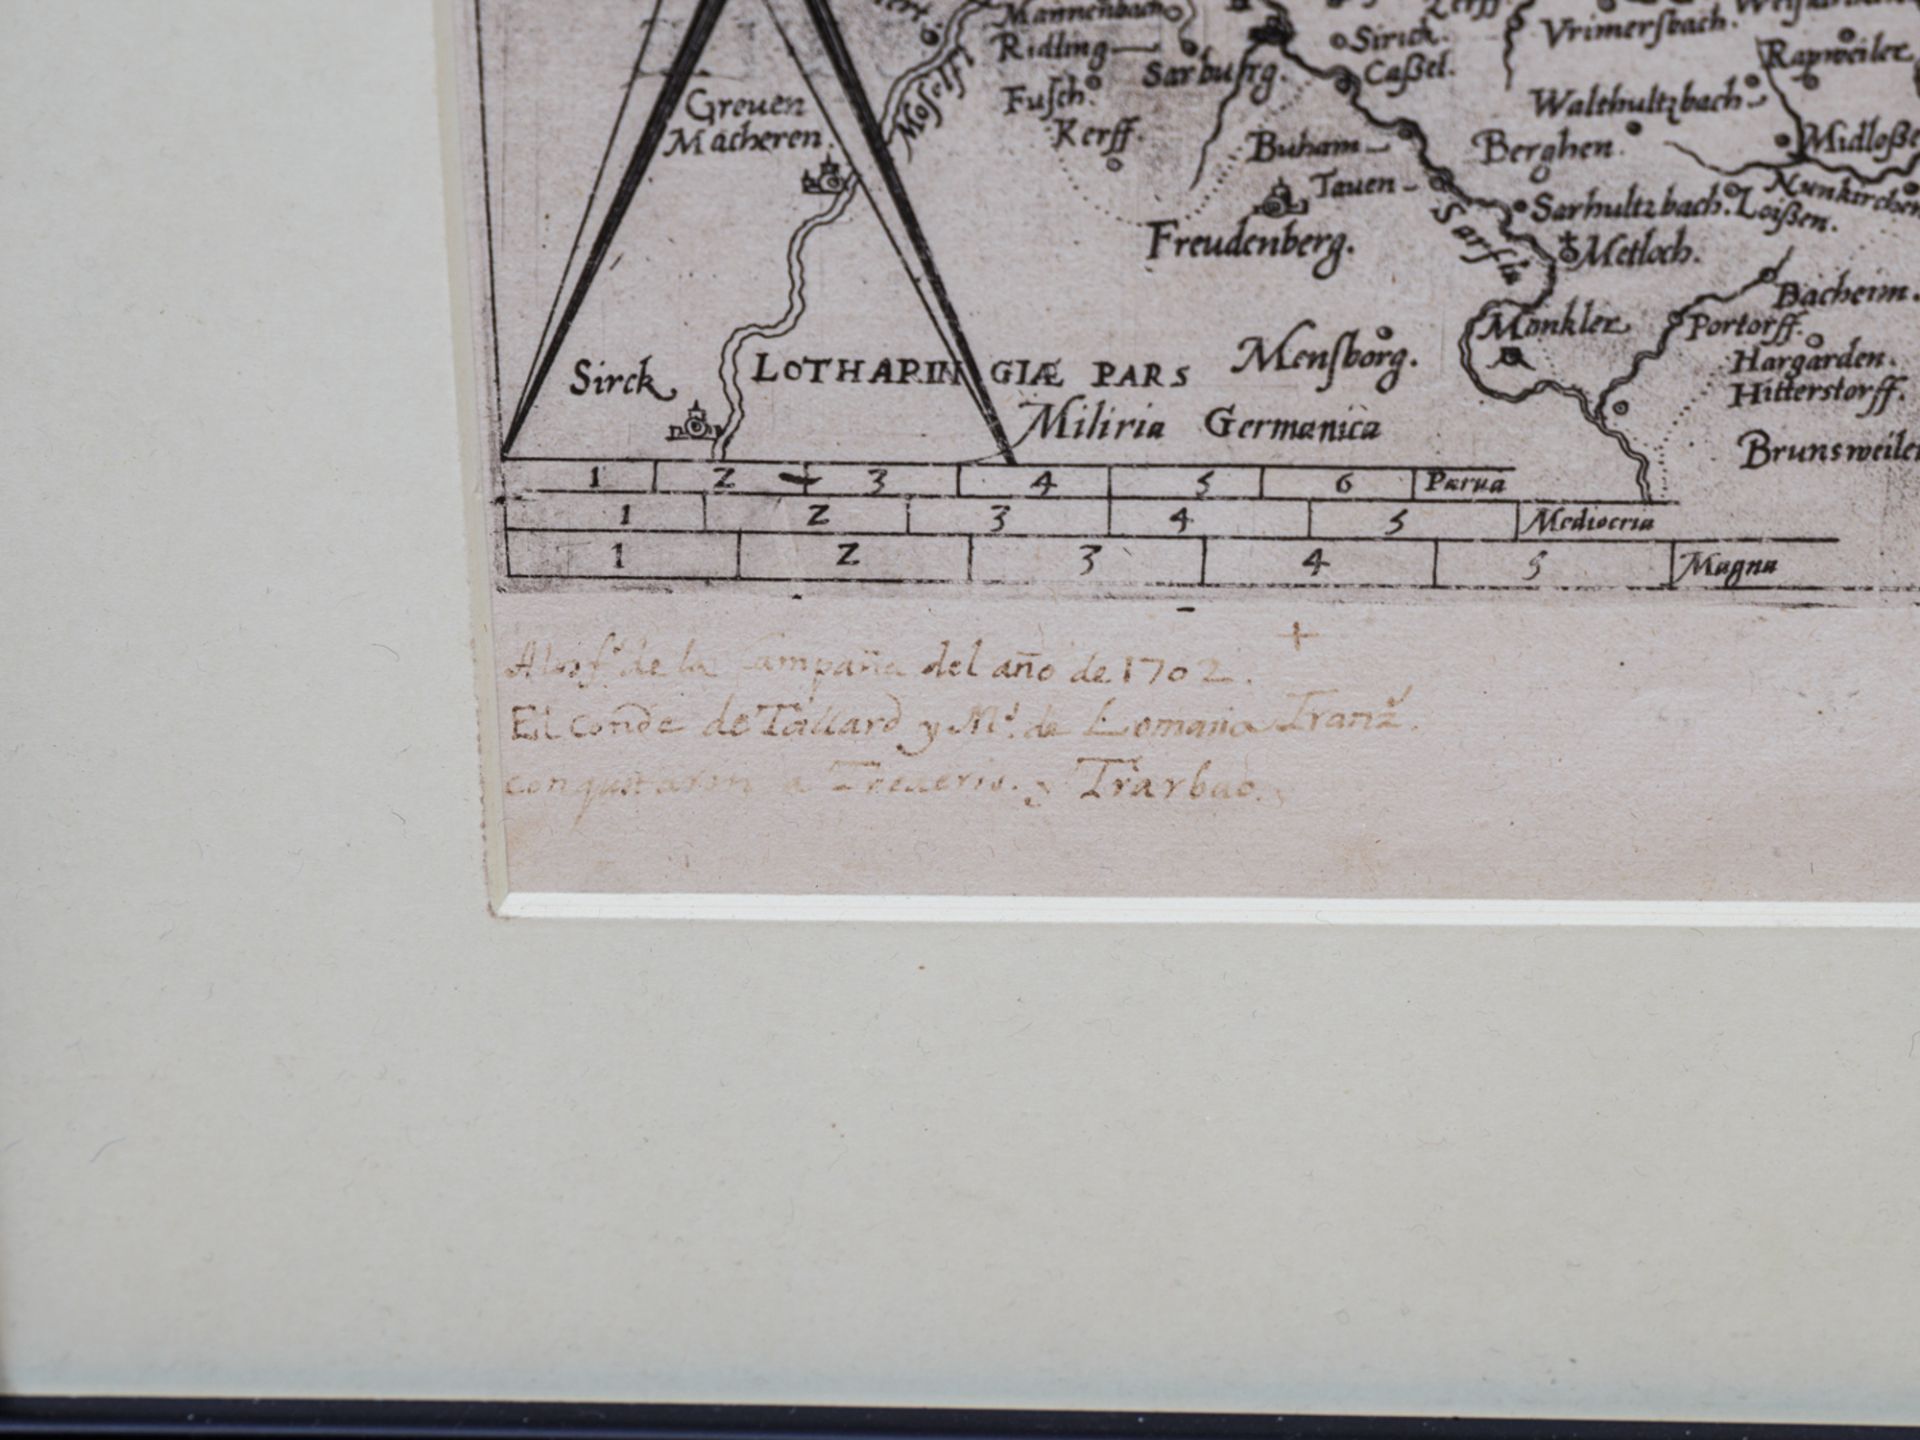 Mannenbach
Ridling
Sarburg.
Fuſch.
Kerff.
Greuen
Macheren.
Moſelfl
Sirick.
Caßel.
Vrimerſbach.
Rapweiler
Walthultzbach
Berghen.
Midloße
Nunkirchen
Buham
Tauen
Sarhultzbach.
Loißen.
Freudenberg.
Metloch.
Bacheim.
Monkler
Portorff.
Hargarden.
Hitterstorff.
Brunsweiler
Sirck
LOTHARINGIÆ PARS
Menſborg.
Miliria Germanica
1 2 3 4 5 6 Parua
1 2 3 4 5 Mediocria
1 2 3 4 5 Magna
de la Campaña del año de 1702.
El Conde de Tallard y Mr. de Lomaria Franz.
conquistaron a y Trarbac.